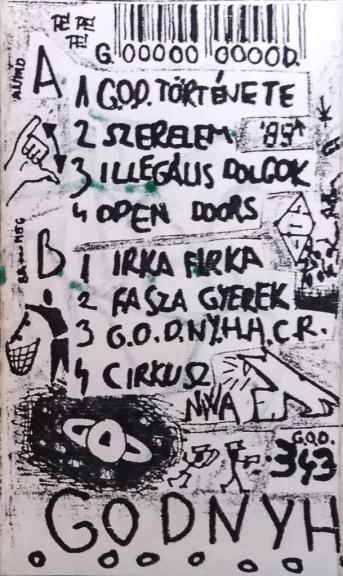 PÉ PÉ
PÉ!
G.00000 0000D.
A
1 G.O.D. TÖRTÉNETE
2 SZERELEM '89
3 ILLEGÁLIS DOLGOK
4 OPEN DOORS
B
1 IRKA FIRKA
2 FASZA GYEREK
3 G.O.D.NY.H.H.C.R.
4 CIRKUSZ
NWA
G.O.D.
343
GODNYH